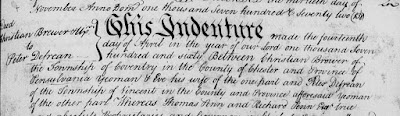 November Anno Dom one thousand seven hundred & Seventy two
Deed
Christian Brewer & Ux
to
Peter Defrean
This Indenture made the fourteenth
day of April in the year of our Lord one thousand seven
hundred and sixty Between Christian Brewer of
the Township of Coventry in the County of Chester and Province of
Pensylvania Yeoman & Eve his wife of the one part and Peter Defrean
of the Township of Vincent in the County and Province aforesaid Yeoman
of the other part Whereas Thomas Penn and Richard Penn Esqrs true
and absolute Proprietaries and